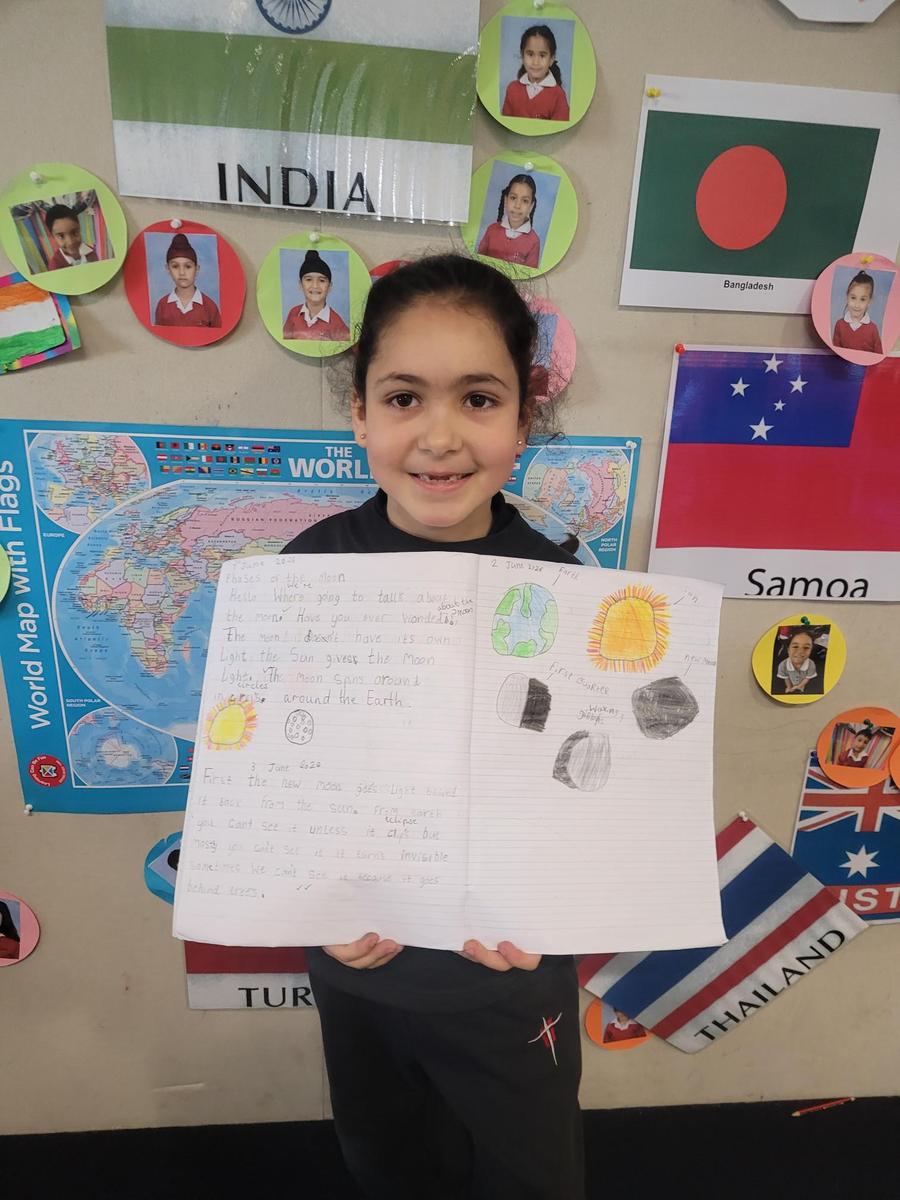 INDIA
Bangladesh
Samoa
World Map with Flags
THE
WORL
EUROPE
RUSSIAN FEDERATION
NORTH
POLAR
REGION
SOUTH POLAR
REGION
TUR
THAILAND
IST
June 2020
Phases of the Moon
we're
Hello Where going to talk about
the moon. Have you ever wonded
about the
moon
The moon doesn't have its own
Light the Sun gives the Moon
Light. The Moon spins around
circles
in around the Earth.
3 June 2020
First the new moon goes light
it back from the sun. From earth
eclipse
you cant see it unless it but
you can't see it it turns invisible
sometimes we can't see it because it goes
behind trees.
2 June 2020
Earth
Sun
First Quarter
new Moon